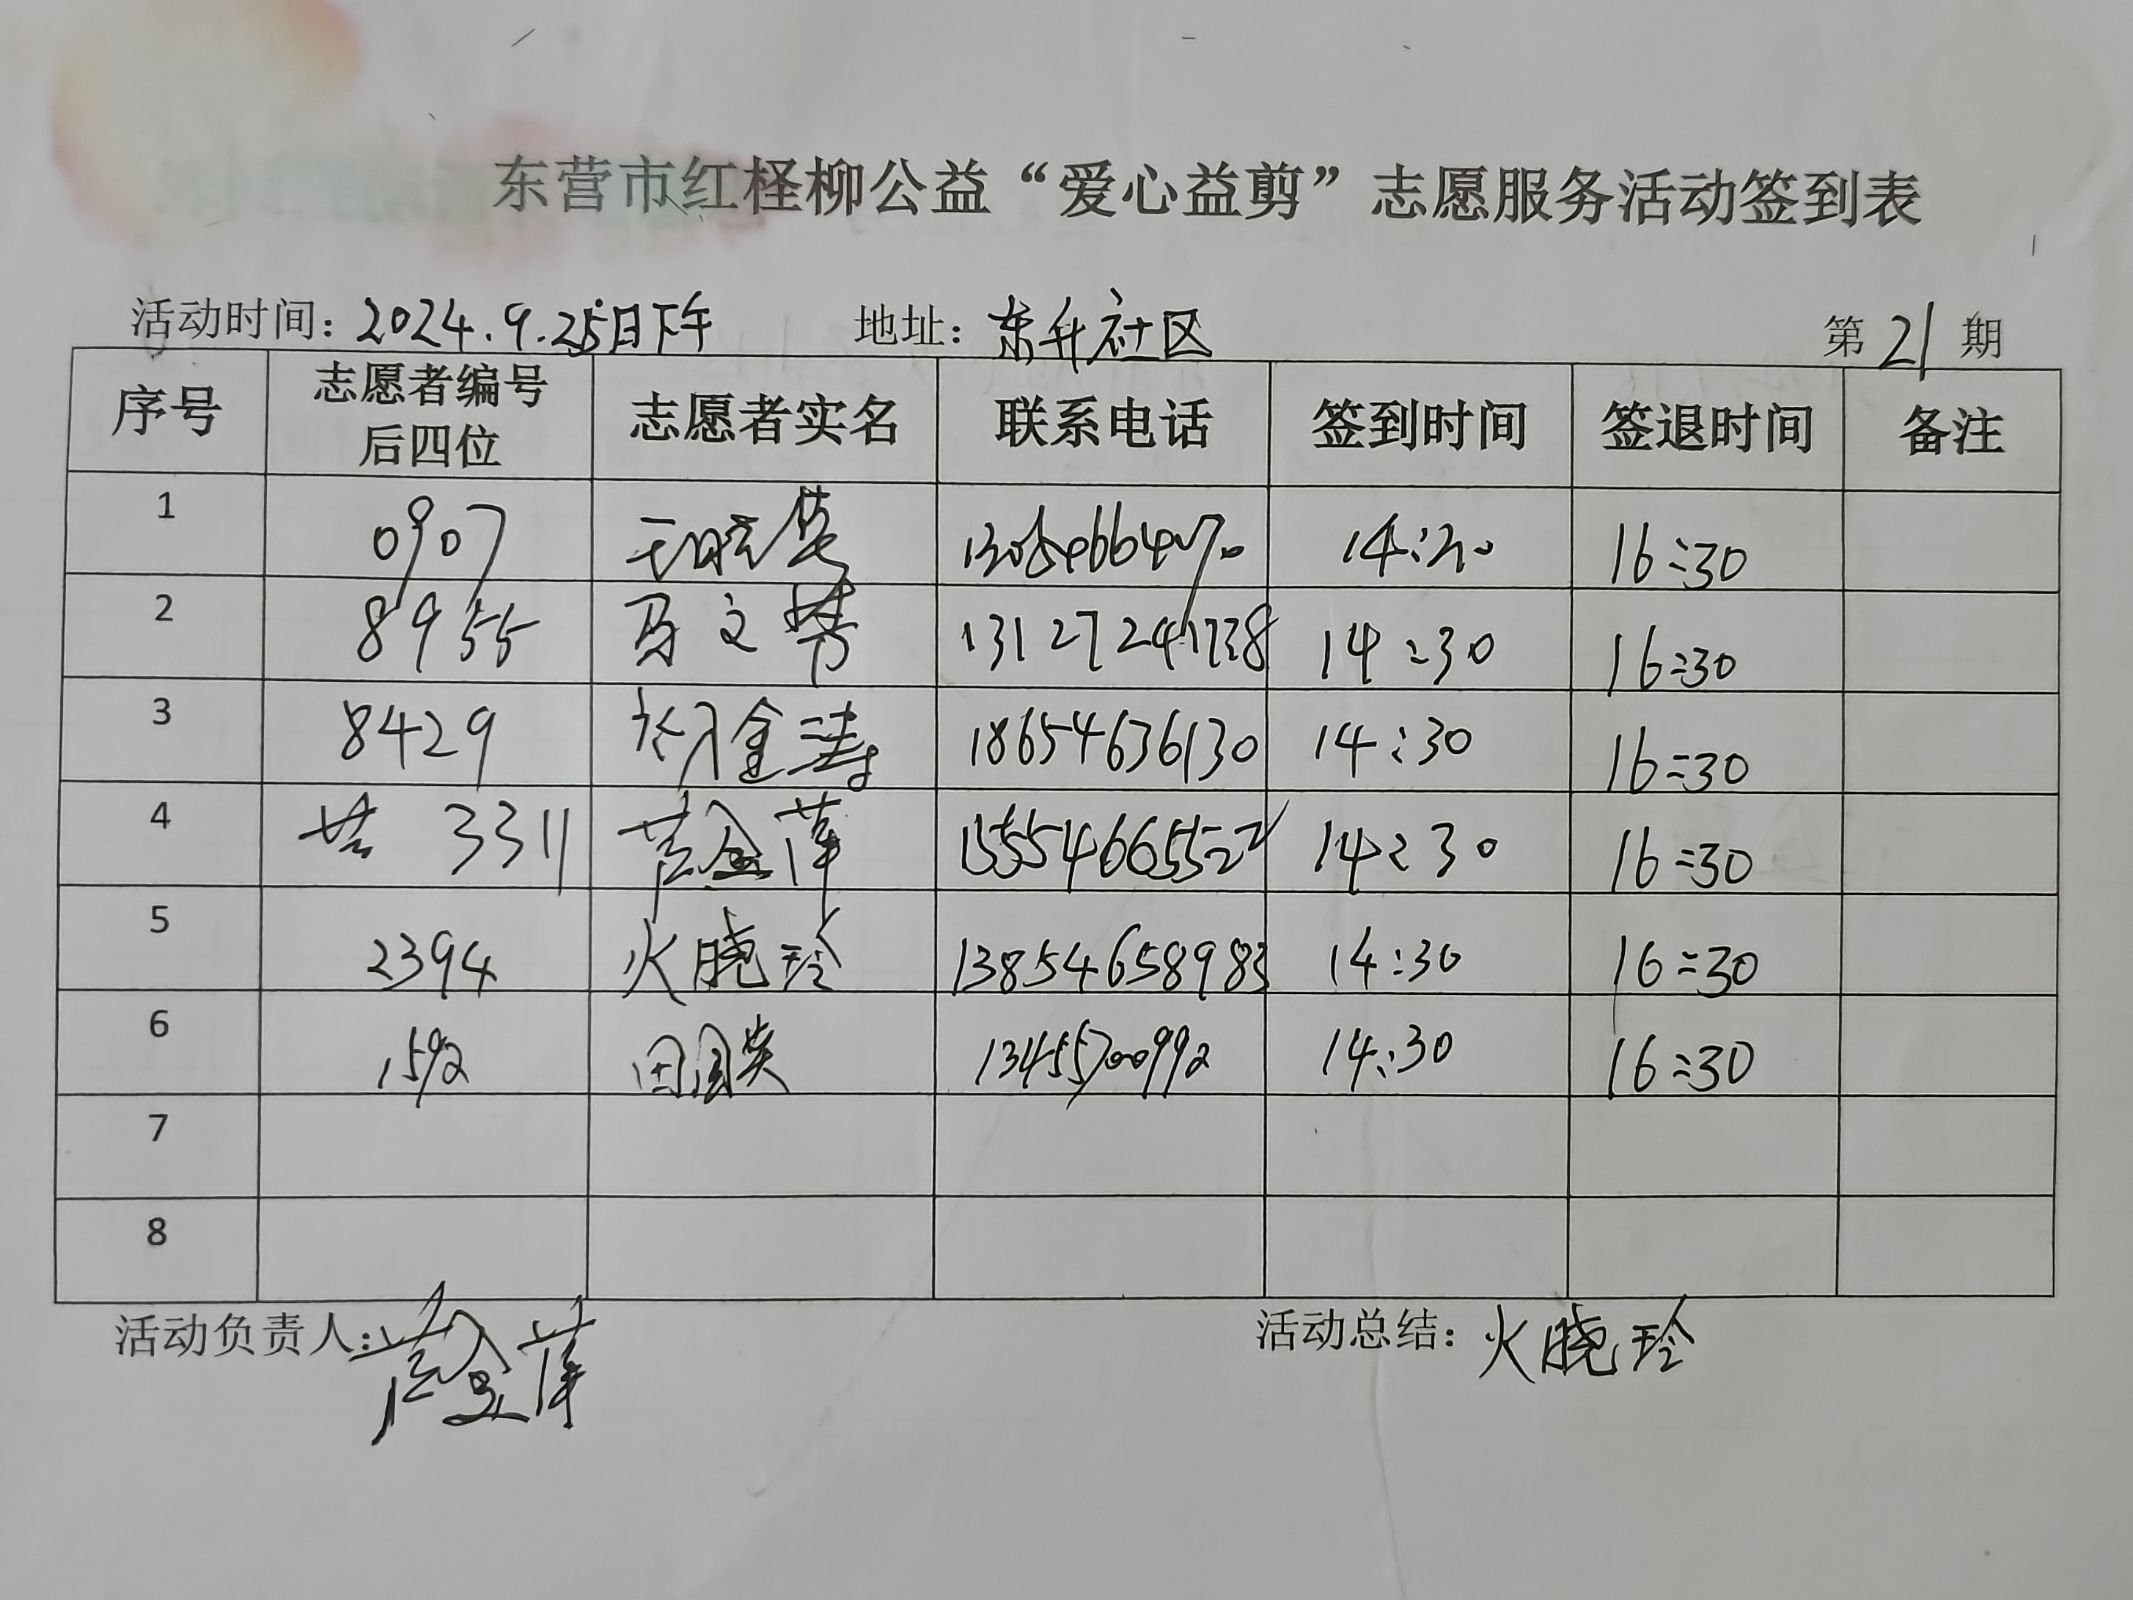 东营市红柽柳公益“爱心益剪”志愿服务活动签到表
活动时间：2024.9.25日下午 地址：东升社区 第21期
序号 志愿者编号后四位 志愿者实名 联系电话 签到时间 签退时间 备注
1 0907 16:30
2 8955 13127241738 14:30 16:30
3 8429 金涛 18654636130 14:30 16:30
4 3311 金萍 15554665522 14:30 16:30
5 2394 火晓玲 13854658983 14:30 16:30
6 1592 田国英 13455700992 14:30 16:30
7
8
活动负责人： 活动总结：火晓玲